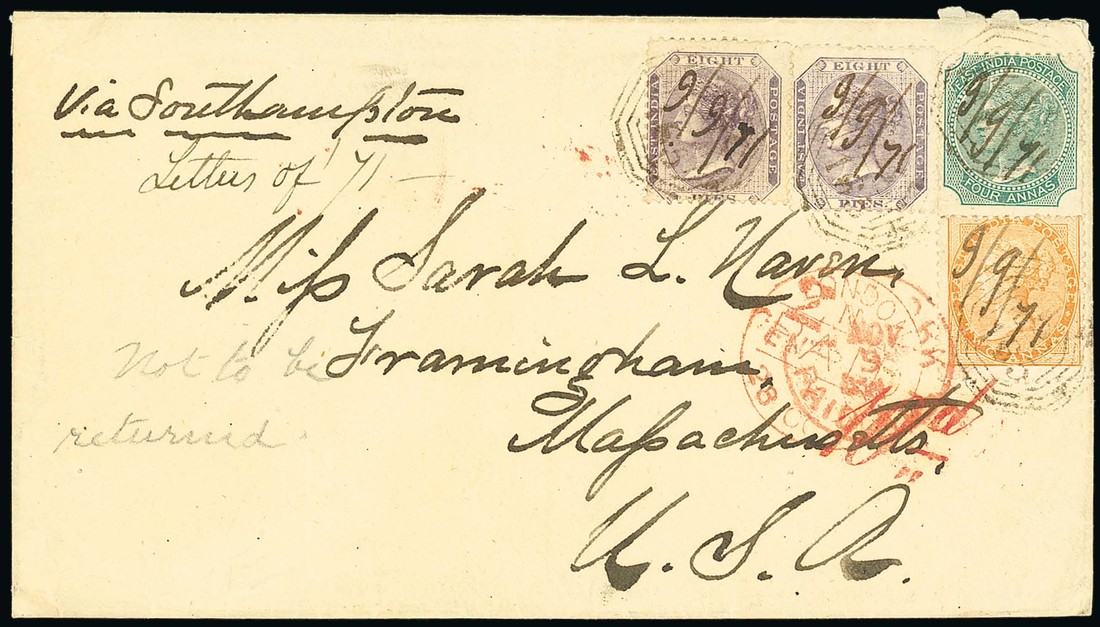 via Southampton
Letters of '71 —
EIGHT
EAST INDIA POSTAGE
PIES.
9/9/71
EIGHT
EAST INDIA POSTAGE
PIES.
9/9/71
EAST INDIA POSTAGE
FOUR ANNAS
9/9/71
9/9/71
Miss Sarah L. Haven,
Framingham,
Massachusetts,
U. S. A.
Not to be
returned
LONDON
NOV
PAID
28 OC